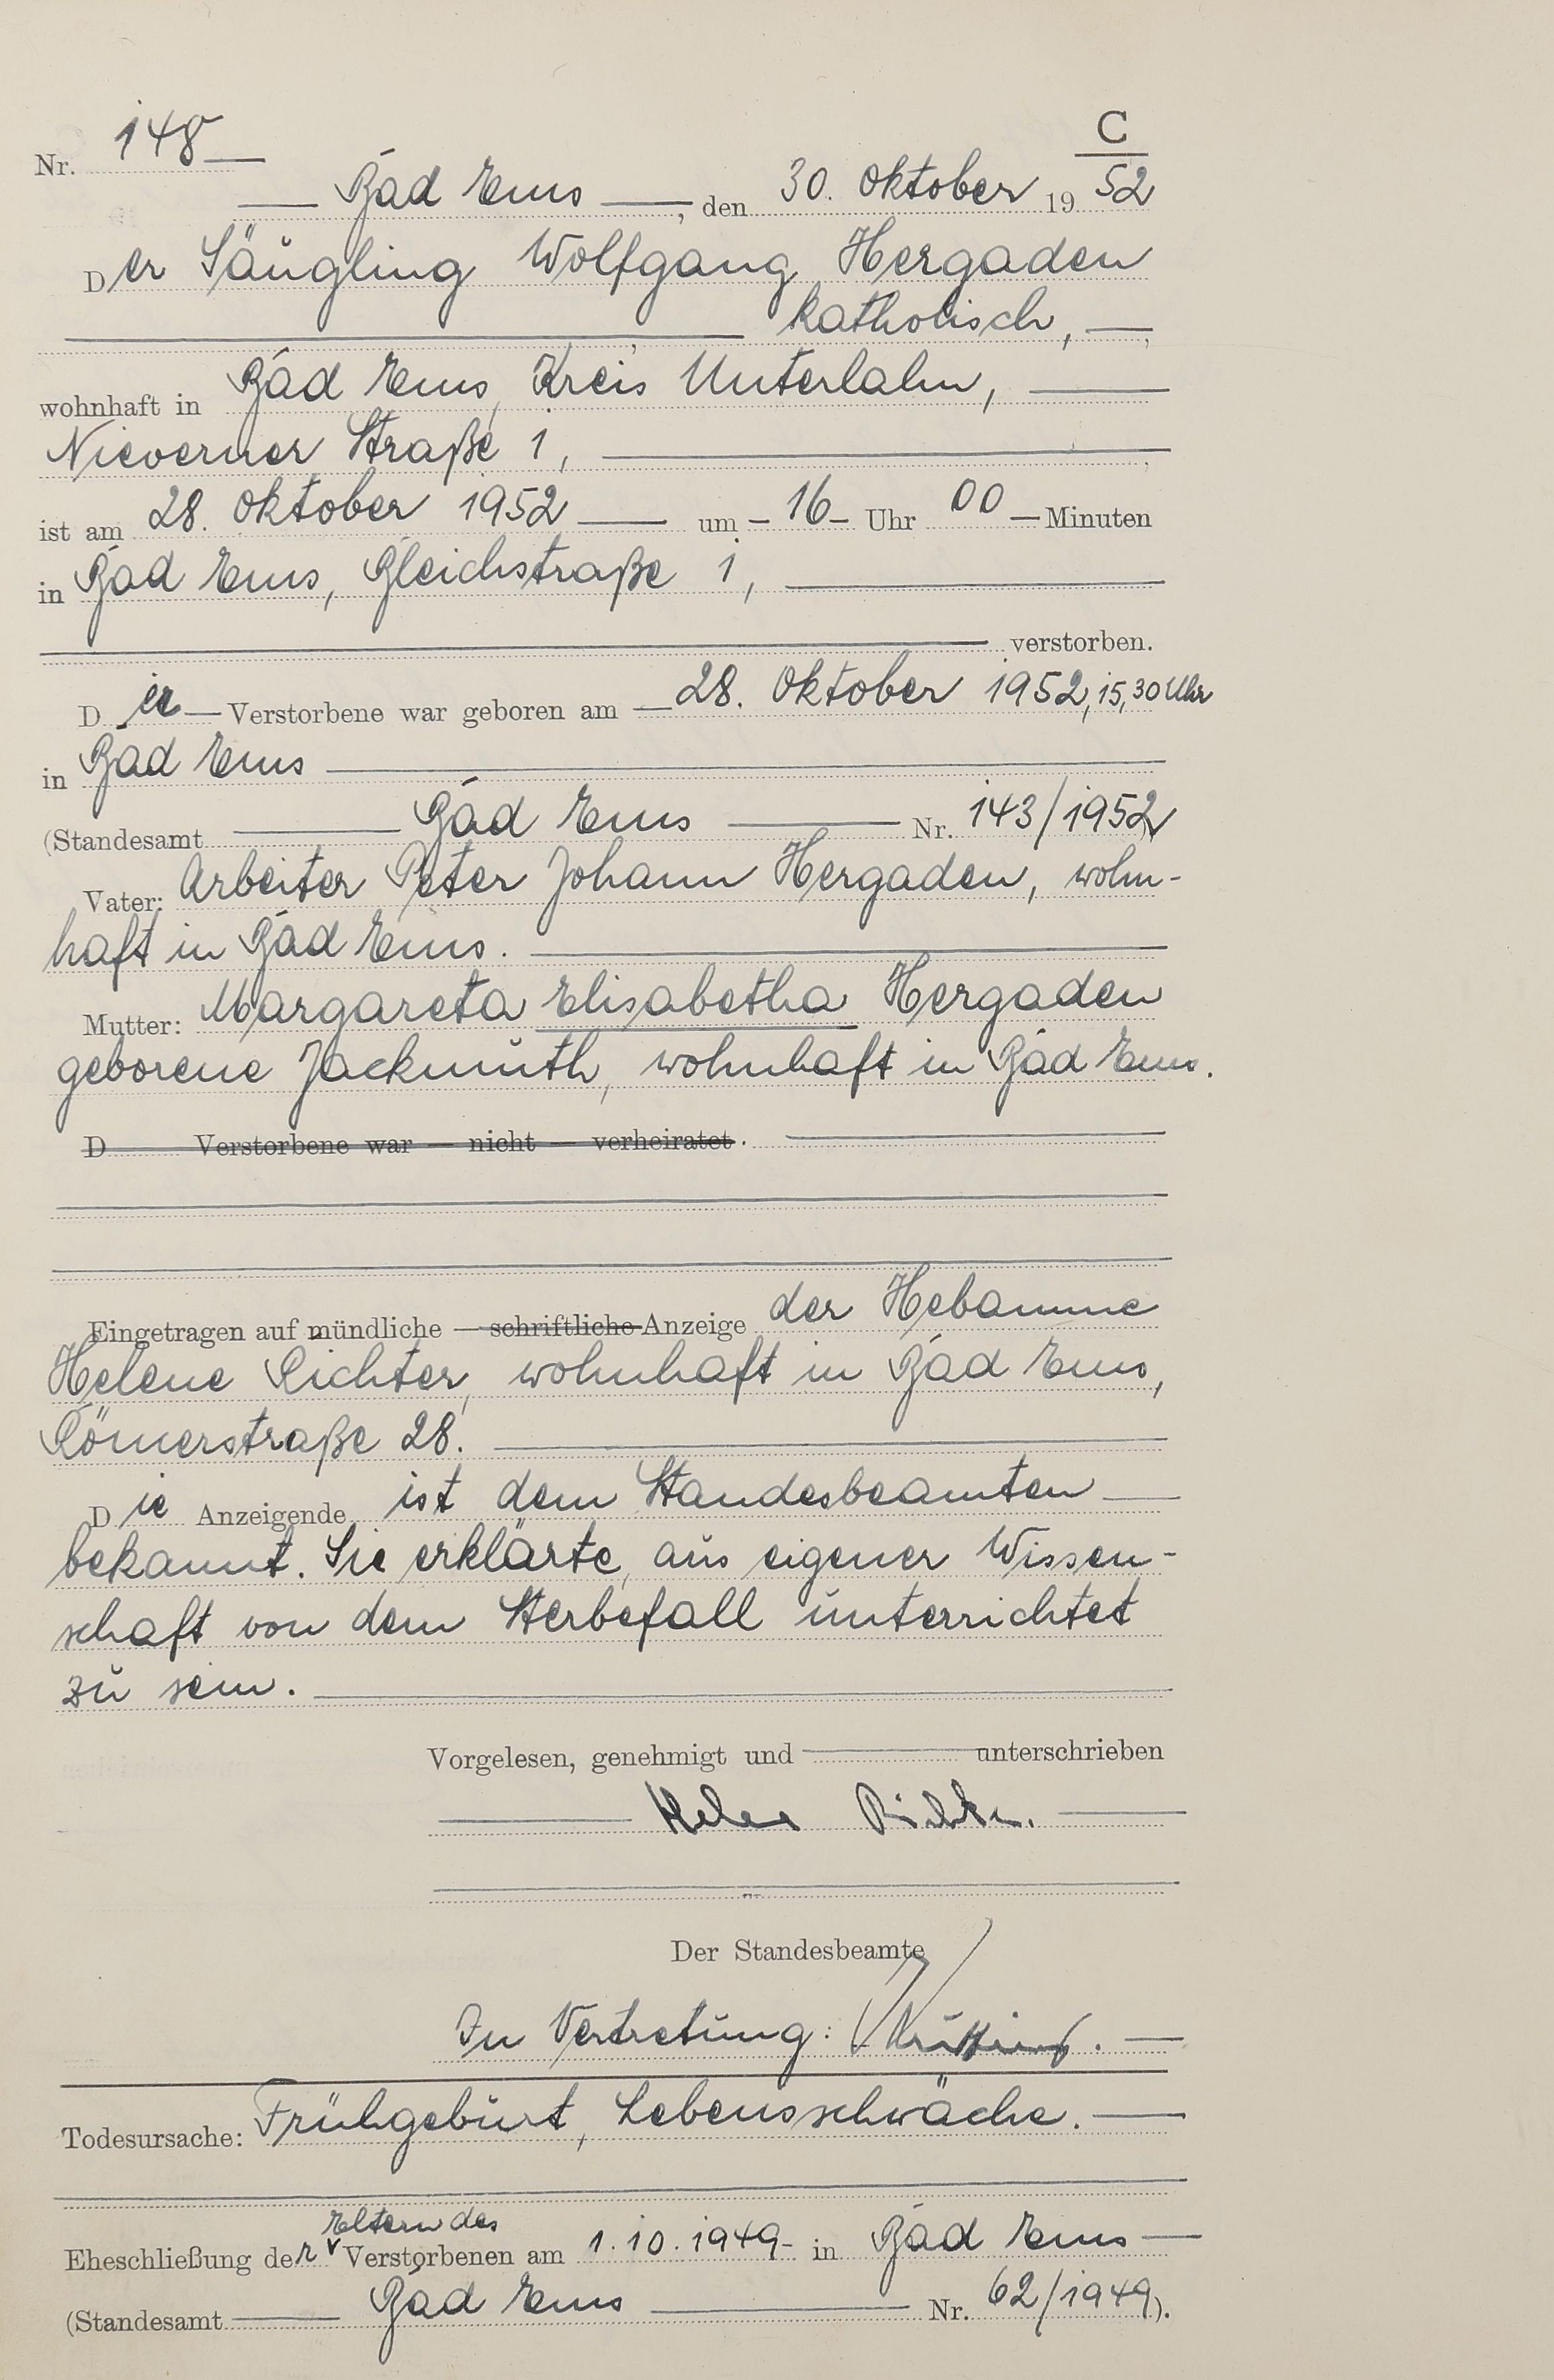 C
Nr. 148
Bad Ems, den 30. Oktober 1952
Der Säugling Wolfgang Hergaden
katholisch,
wohnhaft in Bad Ems, Kreis Unterlahn,
Nieverner Straße 1,
ist am 28. Oktober 1952 um 16 Uhr 00 Minuten
in Bad Ems, Gleichstraße 1,
verstorben.
Der Verstorbene war geboren am 28. Oktober 1952, 15,30 Uhr
in Bad Ems
(Standesamt Bad Ems Nr. 143/1952
Vater: Arbeiter Peter Johann Hergaden, wohn-
haft in Bad Ems.
Mutter: Margareta Elisabetha Hergaden
geborene Jackmuth, wohnhaft in Bad Ems.
D Verstorbene war — nicht — verheiratet.
Eingetragen auf mündliche — schriftliche Anzeige der Hebamme
Helene Richter, wohnhaft in Bad Ems,
Römerstraße 28.
Die Anzeigende ist dem Standesbeamten
bekannt. Sie erklärte, aus eigener Wissen-
schaft von dem Sterbefall unterrichtet
zu sein.
Vorgelesen, genehmigt und unterschrieben
Helene Richter.
Der Standesbeamte
In Vertretung:
Todesursache: Frühgeburt, Lebensschwäche.
Eltern des
Eheschließung der Verstorbenen am 1.10.1949 in Bad Ems
(Standesamt Bad Ems Nr. 62/1949).